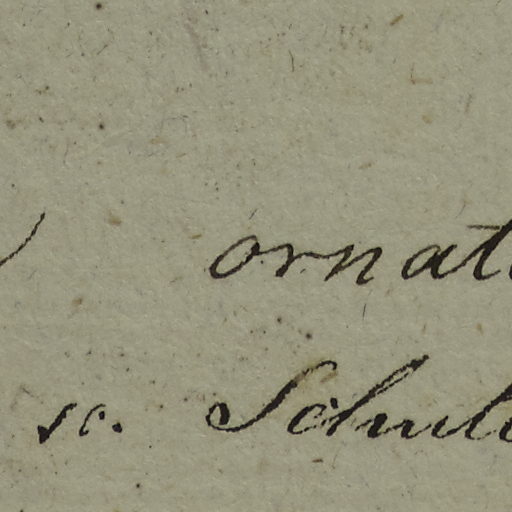 ornat
sc. Schul